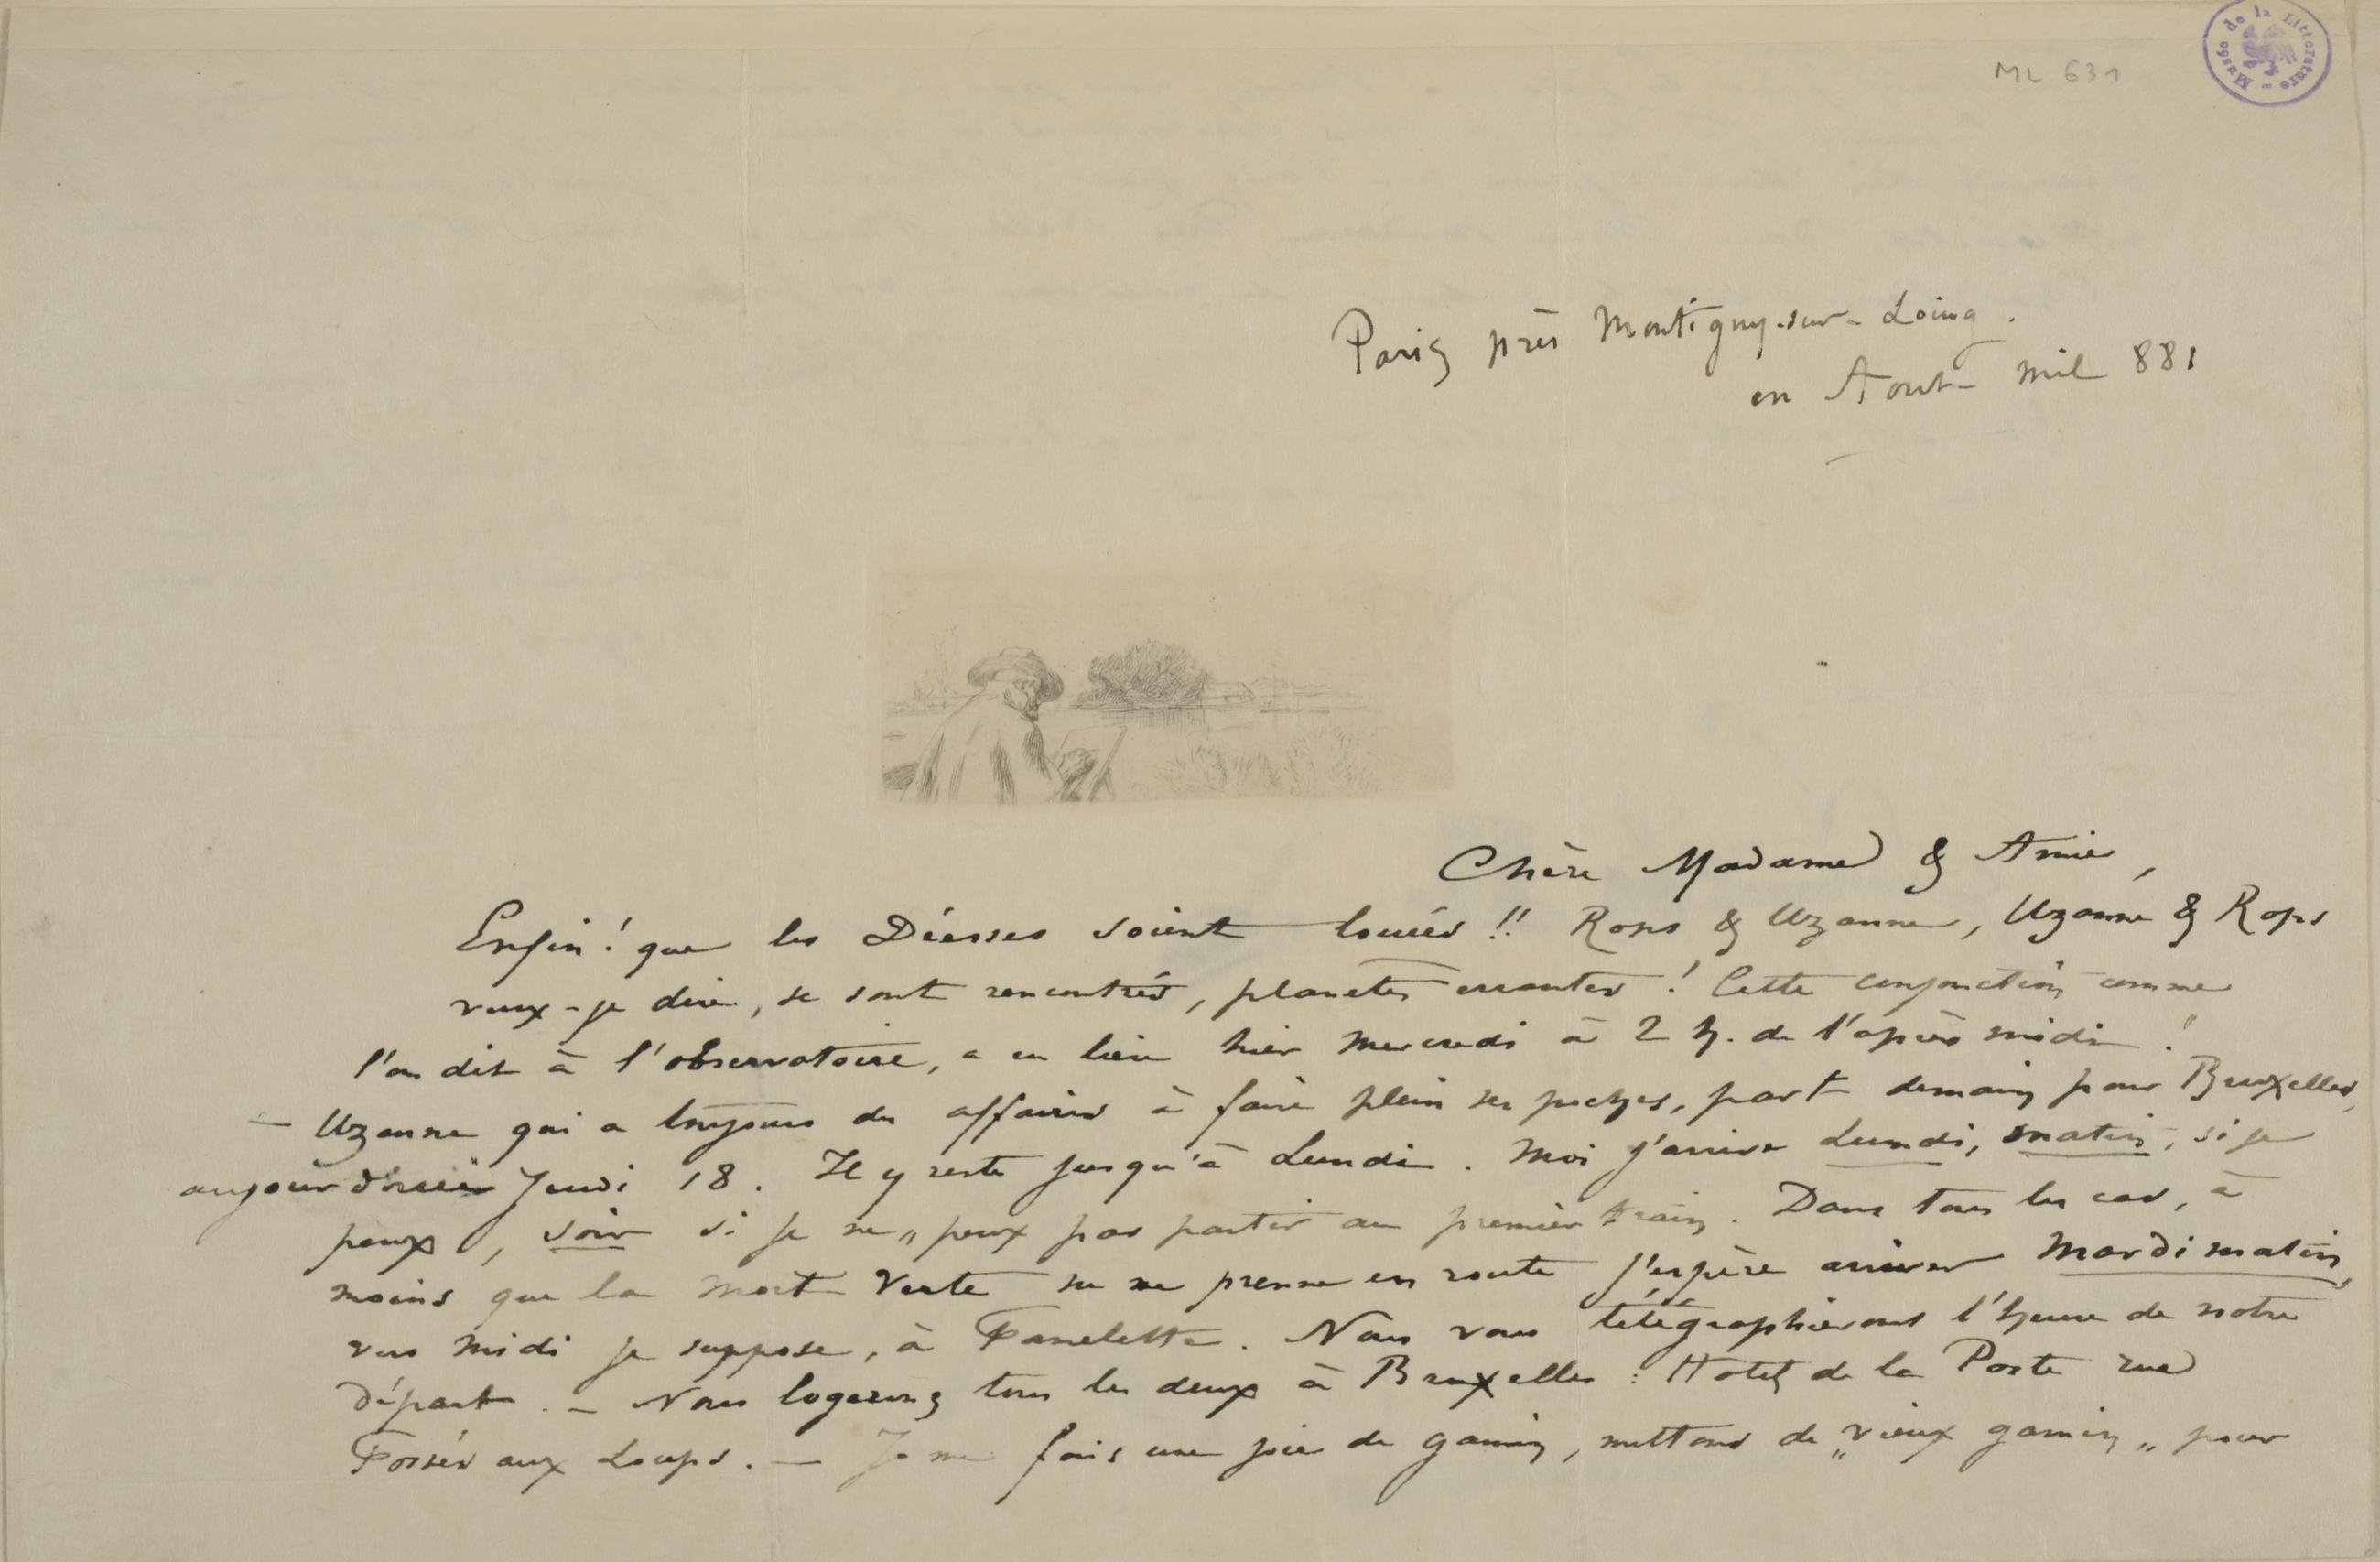 ML 631
Musée de la Littérature
Paris près Montigny-sur-Loing.
en Aout mil 881
Chère Madame & Amie,
Enfin! que les Déesses soient louées!! Rops & Uzanne, Uzanne & Rops
veux-je dire, se sont rencontrés, planètes errantes! Cette conjonction comme
l'on dit à l'observatoire, a eu lieu hier mercredi à 2 h. de l'après midi!
– Uzanne qui a toujours des affaires à faire plein ses poches, part demain pour Bruxelles,
aujourd'hui Jeudi 18. Il y reste jusqu'à Lundi. Moi j'arrive Lundi, matin, si je
peux, soir si je ne „peux pas partir au premier train. Dans tous les cas, à
moins que la mort verte ne me prenne en route j'espère arriver Mardi matin,
vers midi je suppose, à Famelette. Nous vous télégraphierons l'heure de notre
départ. – Nous logerons tous les deux à Bruxelles: Hotel de la Poste rue
Fossés aux Loups. – Je me fais une joie de gamin, mettons de „vieux gamin„ pour